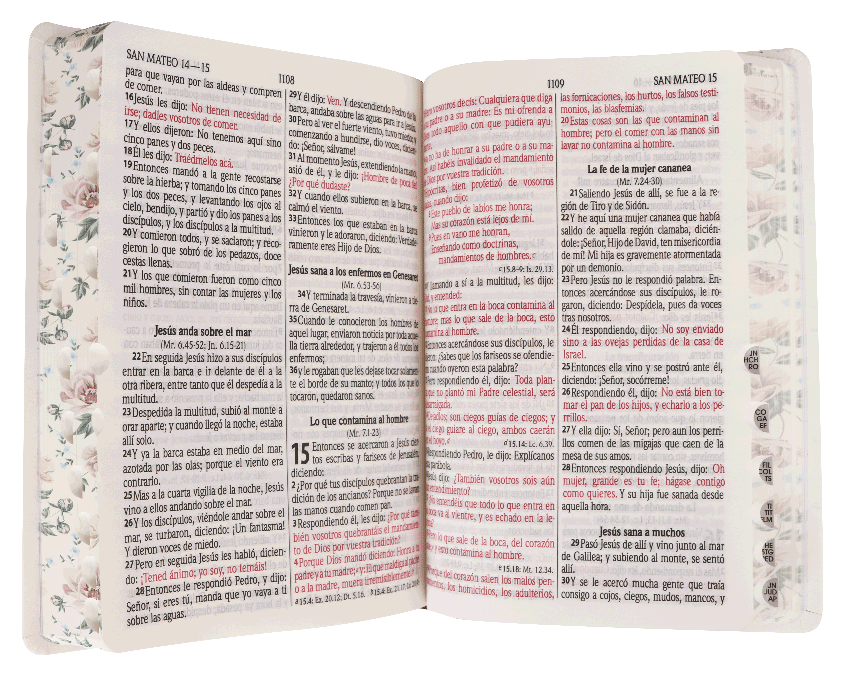 SAN MATEO 14—15
1108
para que vayan por las aldeas y compren
de comer.
16Jesús les dijo: No tienen necesidad de
irse; dadles vosotros de comer.
17Y ellos dijeron: No tenemos aquí sino
cinco panes y dos peces.
18Él les dijo: Traédmelos acá.
19Entonces mandó a la gente recostarse
sobre la hierba; y tomando los cinco panes
y los dos peces, y levantando los ojos al
cielo, bendijo, y partió y dio los panes a los
discípulos, y los discípulos a la multitud.
20Y comieron todos, y se saciaron; y reco-
gieron lo que sobró de los pedazos, doce
cestas llenas.
21Y los que comieron fueron como cinco
mil hombres, sin contar las mujeres y los
niños.
Jesús anda sobre el mar
(Mr. 6.45-52; Jn. 6.15-21)
22En seguida Jesús hizo a sus discípulos
entrar en la barca e ir delante de él a la
otra ribera, entre tanto que él despedía a la
multitud.
23Despedida la multitud, subió al monte a
orar aparte; y cuando llegó la noche, estaba
allí solo.
24Y ya la barca estaba en medio del mar,
azotada por las olas; porque el viento era
contrario.
25Mas a la cuarta vigilia de la noche, Jesús
vino a ellos andando sobre el mar.
26Y los discípulos, viéndole andar sobre el
mar, se turbaron, diciendo: ¡Un fantasma!
Y dieron voces de miedo.
27Pero en seguida Jesús les habló, dicien-
do: ¡Tened ánimo; yo soy, no temáis!
28Entonces le respondió Pedro, y dijo:
Señor, si eres tú, manda que yo vaya a ti
sobre las aguas.
29Y él dijo: Ven. Y descendiendo Pedro de la
barca, andaba sobre las aguas para ir a Jesús.
30Pero al ver el fuerte viento, tuvo miedo; y
comenzando a hundirse, dio voces, dicien-
do: ¡Señor, sálvame!
31Al momento Jesús, extendiendo la mano,
asió de él, y le dijo: ¡Hombre de poca fe!
¿Por qué dudaste?
32Y cuando ellos subieron en la barca, se
calmó el viento.
33Entonces los que estaban en la barca
vinieron y le adoraron, diciendo: Verdade-
ramente eres Hijo de Dios.
Jesús sana a los enfermos en Genesaret
(Mr. 6.53-56)
34Y terminada la travesía, vinieron a tie-
rra de Genesaret.
35Cuando le conocieron los hombres de
aquel lugar, enviaron noticia por toda aque-
lla tierra alrededor, y trajeron a él todos los
enfermos;
36y le rogaban que les dejase tocar solamen-
te el borde de su manto; y todos los que lo
tocaron, quedaron sanos.
Lo que contamina al hombre
(Mr. 7.1-23)
15 Entonces se acercaron a Jesús cier-
tos escribas y fariseos de Jerusalén,
diciendo:
2¿Por qué tus discípulos quebrantan la tra-
dición de los ancianos? Porque no se lavan
las manos cuando comen pan.
3Respondiendo él, les dijo: ¿Por qué tam-
bién vosotros quebrantáis el mandamien-
to de Dios por vuestra tradición?
4Porque Dios mandó diciendo: Honra a tu
padre y a tu madre; y: El que maldiga al padre
o a la madre, muera irremisiblemente.
a 15.4: Ex. 20.12; Dt. 5.16. b 15.4: Ex. 21.17; Lv. 20.9.
1109
SAN MATEO 15
vosotros decís: Cualquiera que diga
su padre o a su madre: Es mi ofrenda a
todo aquello con que pudiera ayu-
no ha de honrar a su padre o a su ma-
Así habéis invalidado el mandamiento
de Dios por vuestra tradición.
bien profetizó de vosotros
cuando dijo:
Este pueblo de labios me honra;
Mas su corazón está lejos de mí.
Pues en vano me honran,
Enseñando como doctrinas,
mandamientos de hombres.c
c 15.8-9: Is. 29.13.
llamando a sí a la multitud, les dijo:
y entended:
lo que entra en la boca contamina al
mas lo que sale de la boca, esto
contamina al hombre.
Entonces acercándose sus discípulos, le
¿Sabes que los fariseos se ofendie-
cuando oyeron esta palabra?
Pero respondiendo él, dijo: Toda plan-
que no plantó mi Padre celestial, será
desarraigada.
Dejadlos; son ciegos guías de ciegos; y
ciego guiare al ciego, ambos caerán
hoyo.d
d 15.14: Lc. 6.39.
Respondiendo Pedro, le dijo: Explícanos
parábola.
Jesús dijo: ¿También vosotros sois aún
entendimiento?
entendéis que todo lo que entra en
va al vientre, y es echado en la le-
lo que sale de la boca, del corazón
y esto contamina al hombre.
e 15.18: Mt. 12.34.
Porque del corazón salen los malos pen-
los homicidios, los adulterios,
las fornicaciones, los hurtos, los falsos testi-
monios, las blasfemias.
20Estas cosas son las que contaminan al
hombre; pero el comer con las manos sin
lavar no contamina al hombre.
La fe de la mujer cananea
(Mr. 7.24-30)
21Saliendo Jesús de allí, se fue a la re-
gión de Tiro y de Sidón.
22Y he aquí una mujer cananea que había
salido de aquella región clamaba, dicién-
dole: ¡Señor, Hijo de David, ten misericordia
de mí! Mi hija es gravemente atormentada
por un demonio.
23Pero Jesús no le respondió palabra. En-
tonces acercándose sus discípulos, le ro-
garon, diciendo: Despídela, pues da voces
tras nosotros.
24Él respondiendo, dijo: No soy enviado
sino a las ovejas perdidas de la casa de
Israel.
25Entonces ella vino y se postró ante él,
diciendo: ¡Señor, socórreme!
26Respondiendo él, dijo: No está bien to-
mar el pan de los hijos, y echarlo a los pe-
rrillos.
27Y ella dijo: Sí, Señor; pero aun los perri-
llos comen de las migajas que caen de la
mesa de sus amos.
28Entonces respondiendo Jesús, dijo: Oh
mujer, grande es tu fe; hágase contigo
como quieres. Y su hija fue sanada desde
aquella hora.
Jesús sana a muchos
29Pasó Jesús de allí y vino junto al mar
de Galilea; y subiendo al monte, se sentó
allí.
30Y se le acercó mucha gente que traía
consigo a cojos, ciegos, mudos, mancos, y
JN
HCH
RO
CO
GA
EF
FIL
COL
TS
TI
TIT
FLM
HE
STG
PED
JN
JUD
AP